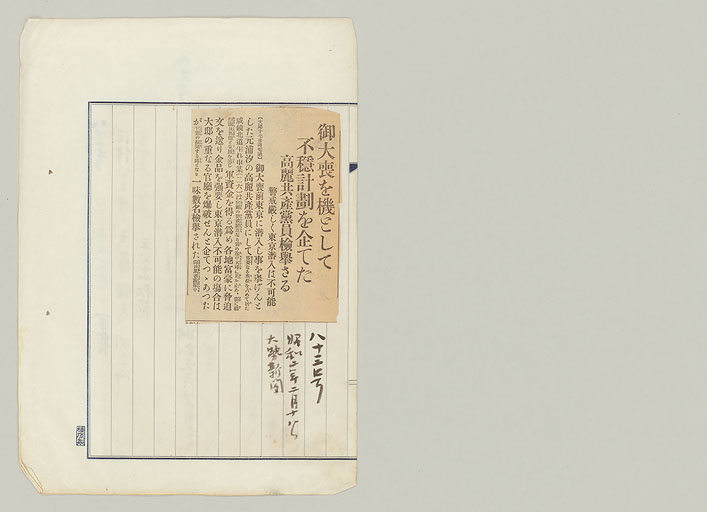 御大喪を機として
不穩計劃を企てた
高麗共產黨員檢擧さる
警戒嚴しく東京潜入は不可能
御大喪前東京に潜入し事を擧げんと
した元浦汐の高麗共產黨員にして
咸鏡北道生れ申某(二六)は
軍資金を得る爲め各地富豪に脅迫
文を送り金品を强要し東京潜入不可能の場合は
大邱の重なる官廳を爆破せんと企てつゝあつた
が 一味數名檢擧された
八十三号
昭和二年二月十
大勢新聞